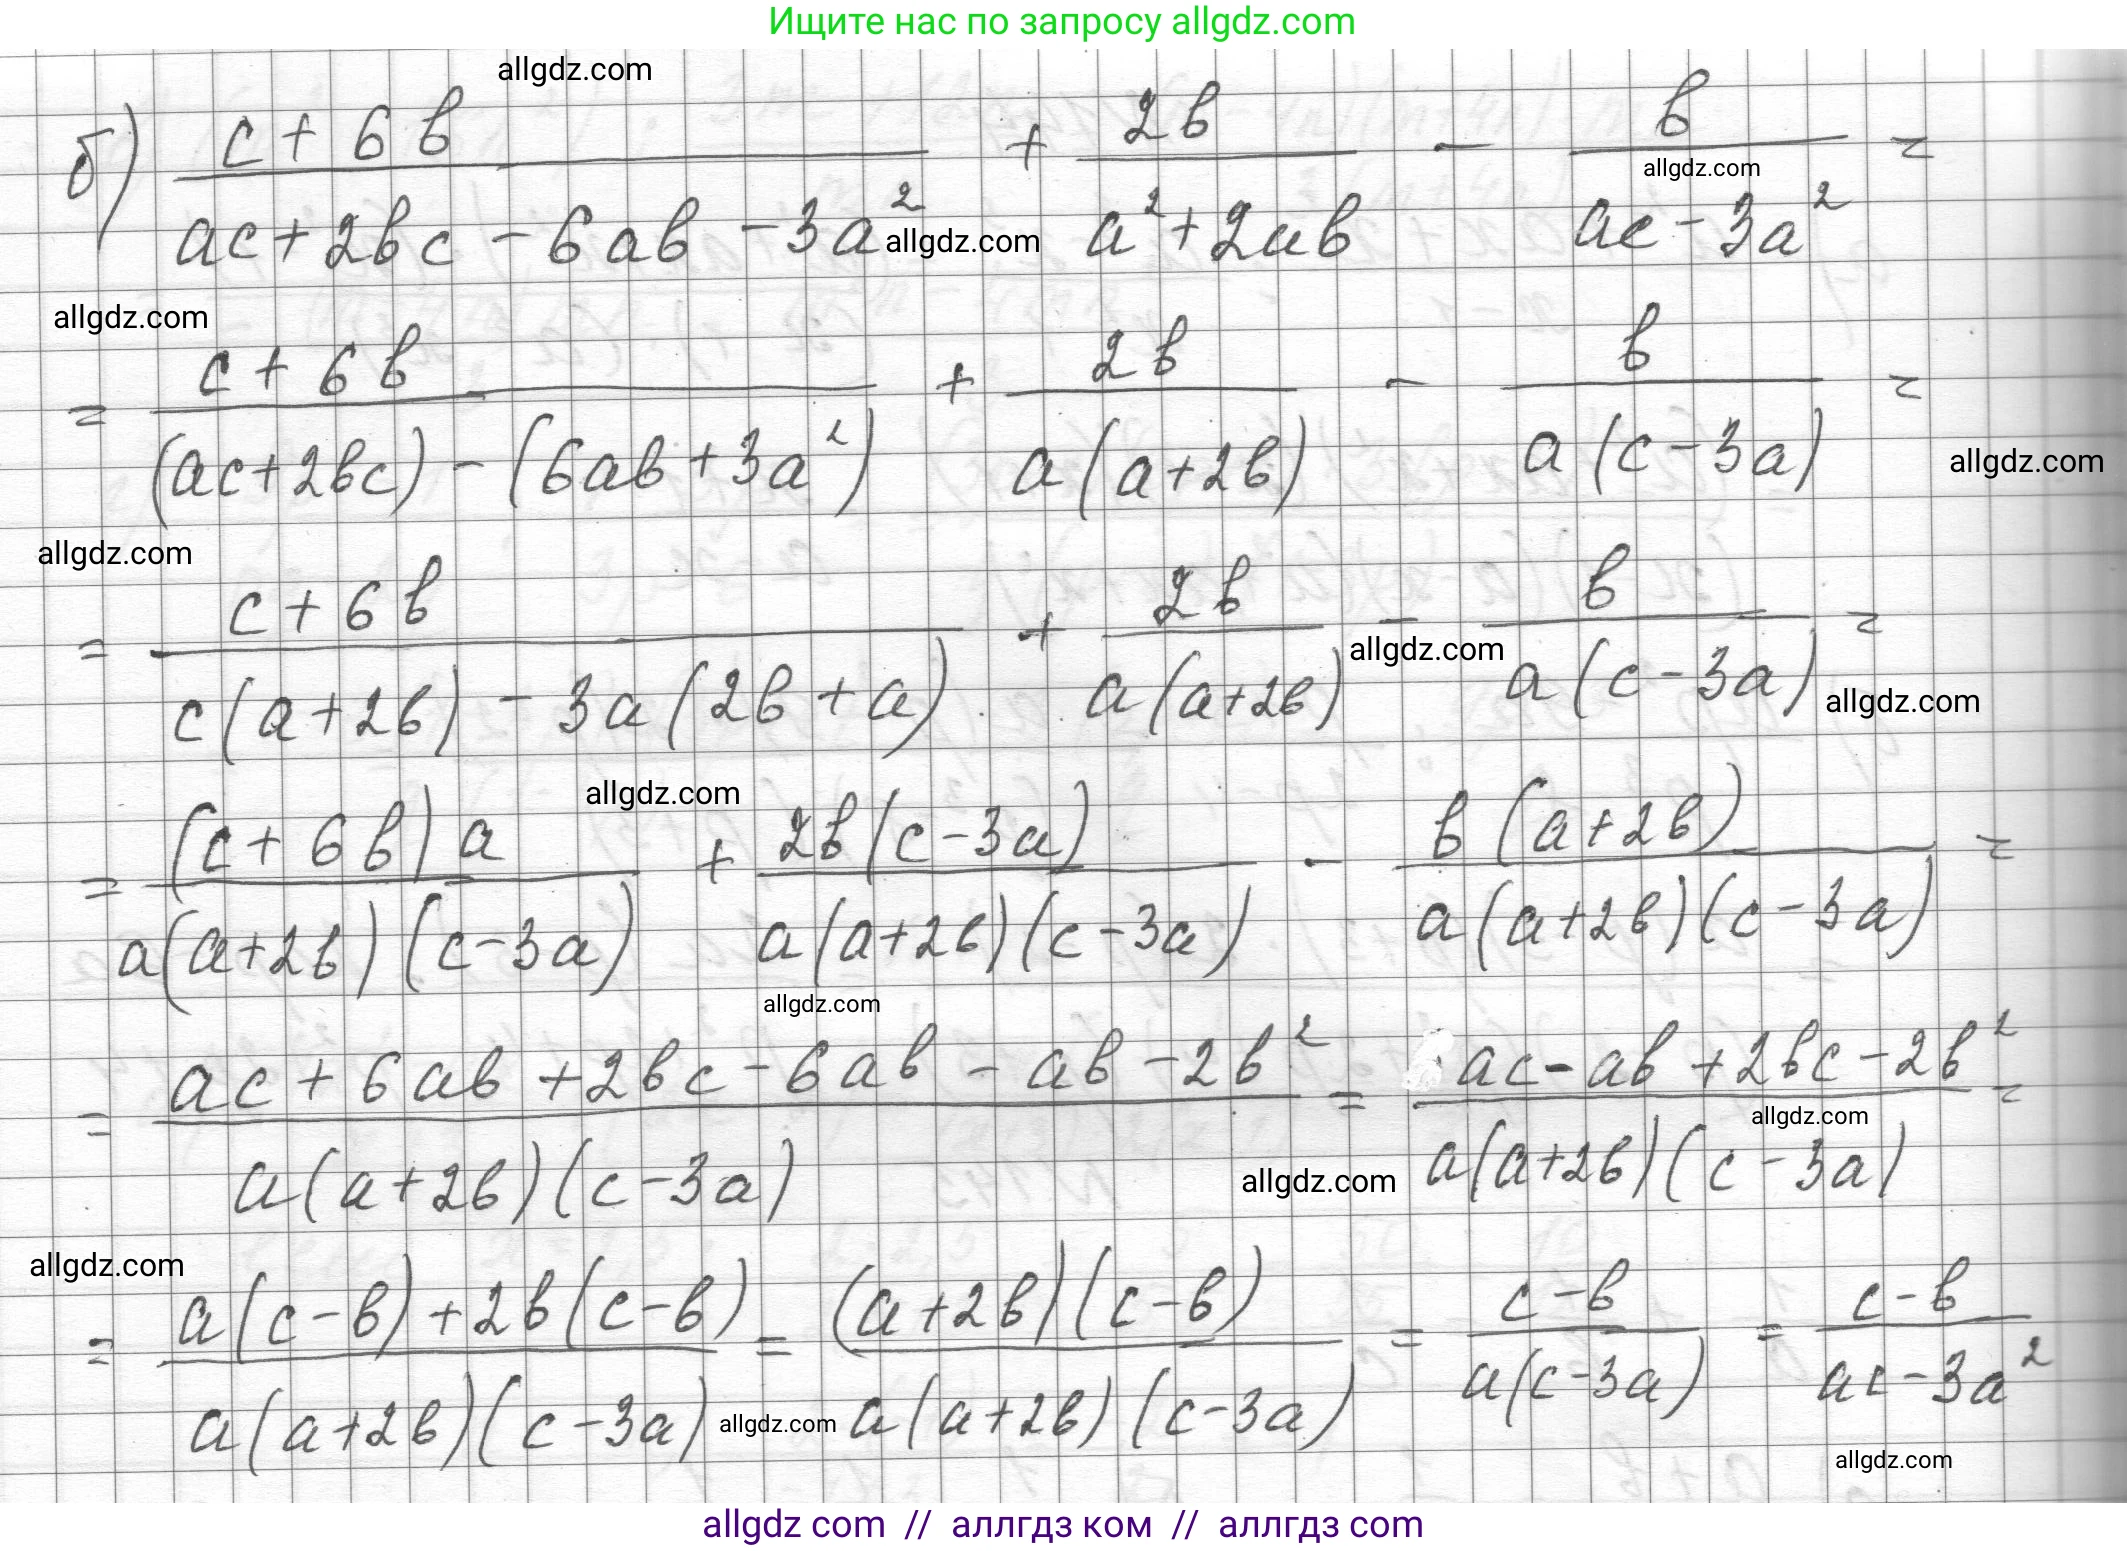 Ищите нас по запросу allgdz.com
allgdz.com
б) (c + 6b)/(ac + 2bc - 6ab - 3a²) + 2b/(a² + 2ab) - b/(ac - 3a²) =
allgdz.com
allgdz.com
allgdz.com
= (c + 6b)/((ac + 2bc) - (6ab + 3a²)) + 2b/(a(a + 2b)) - b/(a(c - 3a)) =
allgdz.com
allgdz.com
= (c + 6b)/(c(a + 2b) - 3a(2b + a)) + 2b/(a(a + 2b)) - b/(a(c - 3a)) =
allgdz.com
allgdz.com
allgdz.com
= (c + 6b)a/(a(a + 2b)(c - 3a)) + 2b(c - 3a)/(a(a + 2b)(c - 3a)) - b(a + 2b)/(a(a + 2b)(c - 3a)) =
allgdz.com
= (ac + 6ab + 2bc - 6ab - ab - 2b²)/(a(a + 2b)(c - 3a)) = (ac - ab + 2bc - 2b²)/(a(a + 2b)(c - 3a)) =
allgdz.com
allgdz.com
allgdz.com
= (a(c - b) + 2b(c - b))/(a(a + 2b)(c - 3a)) = (a + 2b)(c - b)/(a(a + 2b)(c - 3a)) = (c - b)/(a(c - 3a)) = (c - b)/(ac - 3a²)
allgdz.com
allgdz.com
allgdz com // аллгдз ком // аллгдз com